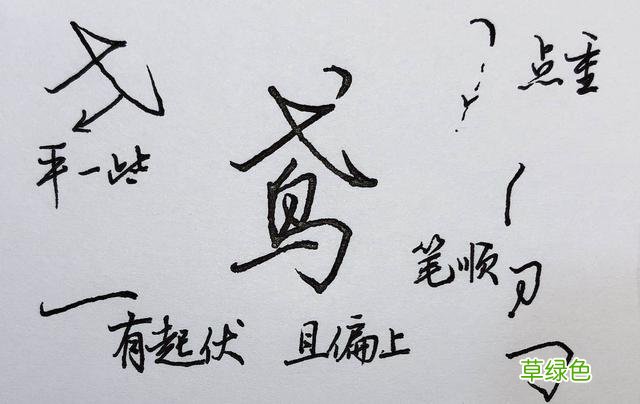 点重
鸢
平一些
笔顺
有起伏 且偏上
草绿色